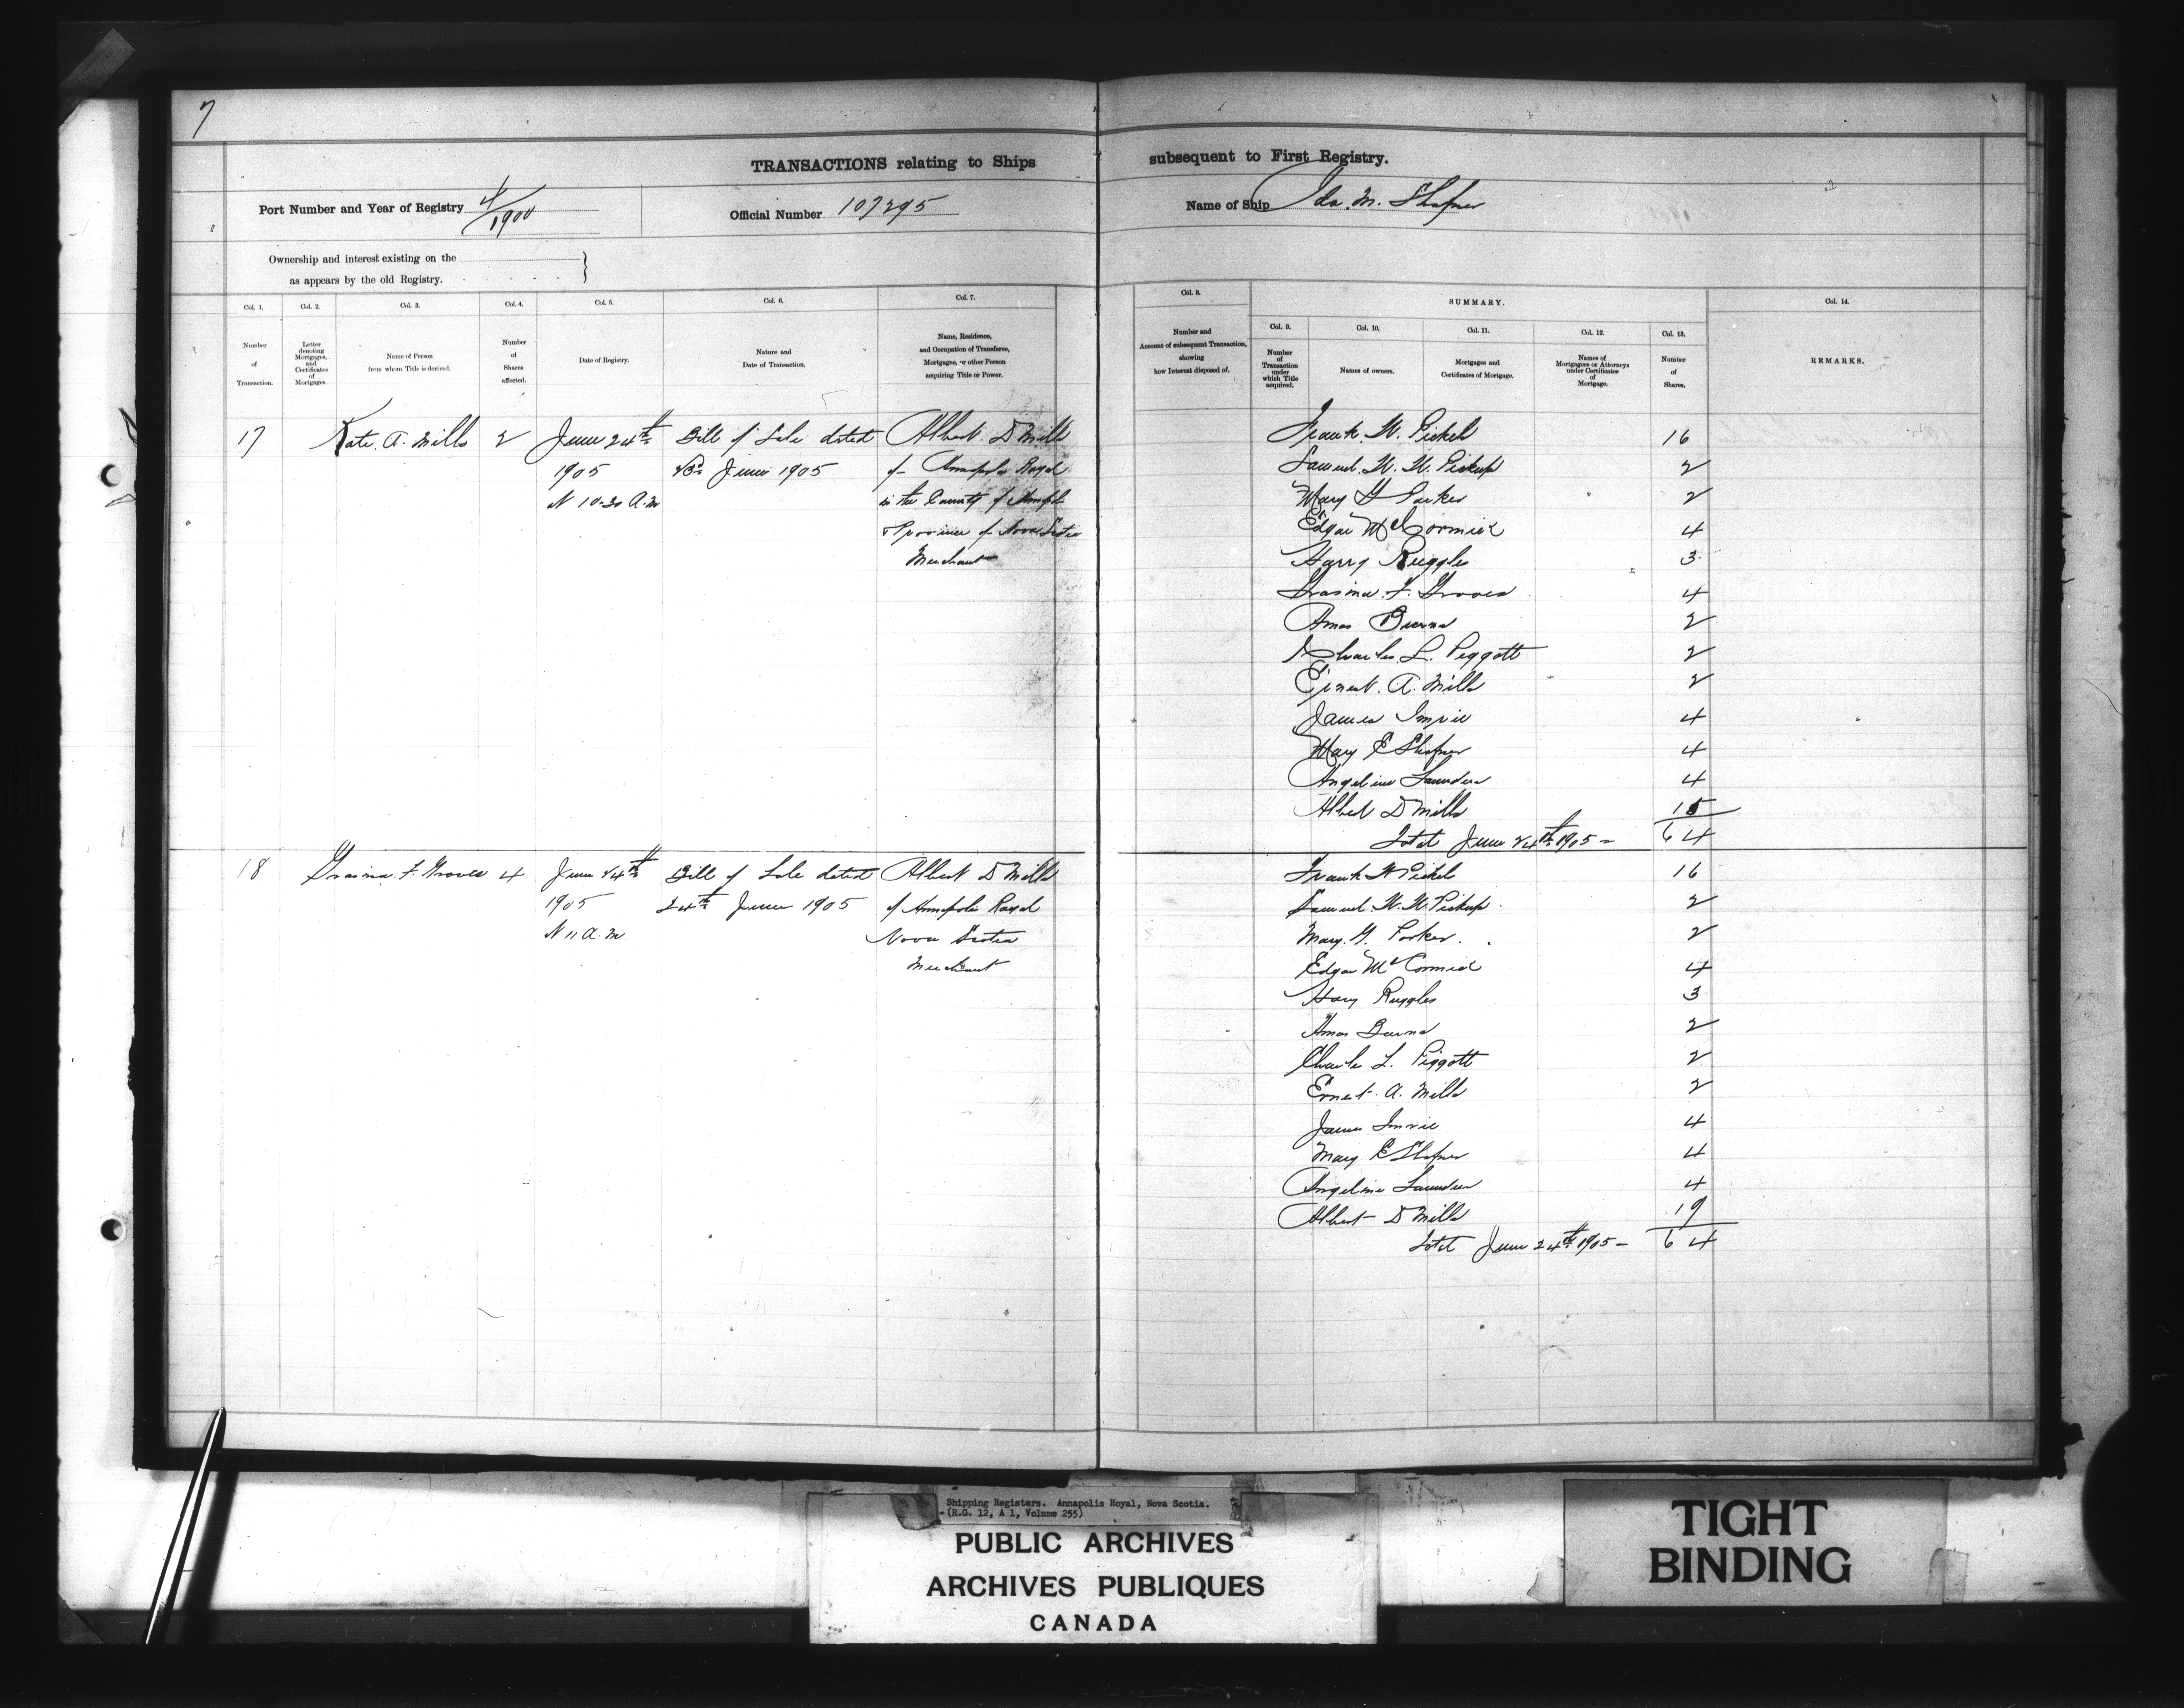 7
TRANSACTIONS relating to Ships subsequent to First Registry.
Port Number and Year of Registry 4/1900
Official Number 107295
Name of Ship Ida M. Shafner
Ownership and interest existing on the
as appears by the old Registry.
Col. 1. Col. 2. Col. 3. Col. 4. Col. 5. Col. 6. Col. 7. Col. 8. SUMMARY. Col. 14.
Col. 9. Col. 10. Col. 11. Col. 12. Col. 13.
Number of Transaction.
Letter denoting Mortgages, and Certificates of Mortgages.
Name of Person from whom Title is derived.
Number of Shares affected.
Date of Registry.
Nature and Date of Transaction.
Name, Residence, and Occupation of Transferee, Mortgagee, or other Person acquiring Title or Power.
Number and Account of subsequent Transaction, showing how Interest disposed of.
Number of Transaction under which Title acquired.
Names of owners.
Mortgages and Certificates of Mortgage.
Names of Mortgagees or Attorneys under Certificates of Mortgage.
Number of Shares.
REMARKS.
17 Kate A. Mills 2 June 24th Bill of Sale dated Albert D Mills
1905 June 1905 of Annapolis Royal
At 10.30 A.M in the County of Annapolis
Province of Nova Scotia
Merchant
Frank W. Pickels 16
Samuel W. W. Pickup 2
Mary G Parker 2
Edgar McCormick 4
Harry Ruggles 3
F. Groves 4
Amos Burns 2
Charles L. Piggott 2
Ernest A. Mills 2
James Imrie 4
Mary E Shafner 4
Angelina Saunders 4
Albert D Mills 15
Total June 24th 1905 – 64
18 F. Groves 4 June 24th Bill of Sale dated Albert D Mills
1905 24th June 1905 of Annapolis Royal
At 11 A.M Nova Scotia
Merchant
Frank W Pickels 16
Samuel W. W. Pickup 2
Mary G. Parker 2
Edgar McCormick 4
Harry Ruggles 3
Amos Burns 2
Charles L. Piggott 2
Ernest A. Mills 2
James Imrie 4
Mary E Shafner 4
Angelina Saunders 4
Albert D Mills 19
Total June 24th 1905 – 64
Shipping Registers. Annapolis Royal, Nova Scotia.
(R.G. 12, A 1, Volume 255)
PUBLIC ARCHIVES
ARCHIVES PUBLIQUES
CANADA
TIGHT
BINDING